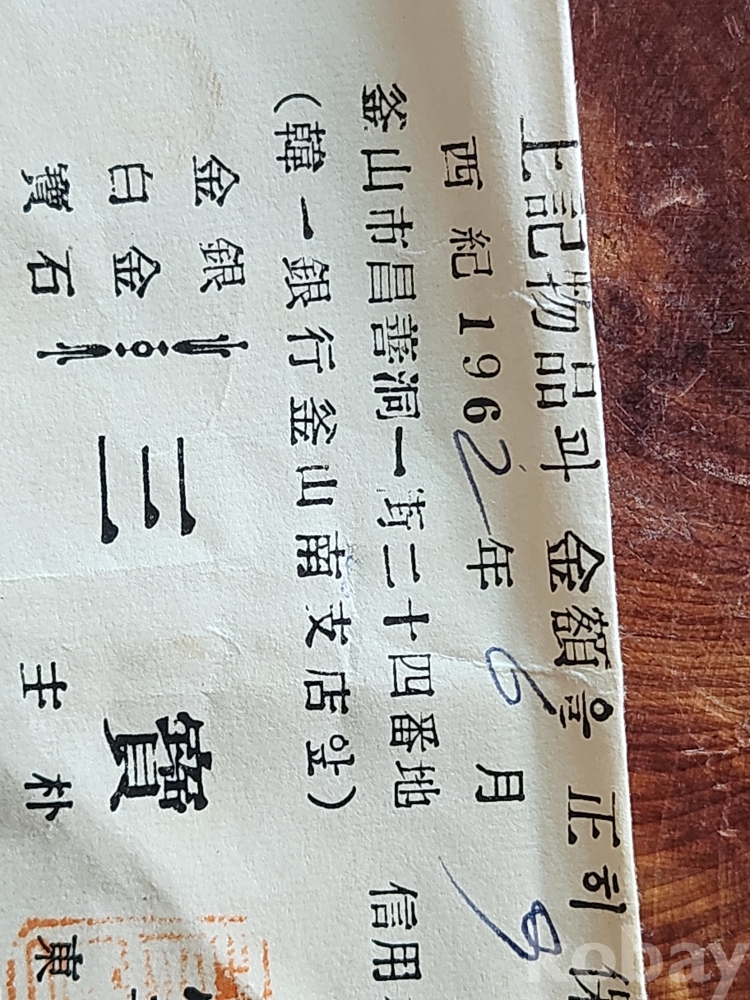 上記物品과 金額을 正히
西紀1962年 6月
釜山市昌善洞一街二十四番地 信用
(韓一銀行釜山南支店앞)
金銀
白金
寶石
三寶
主 朴東
kobay